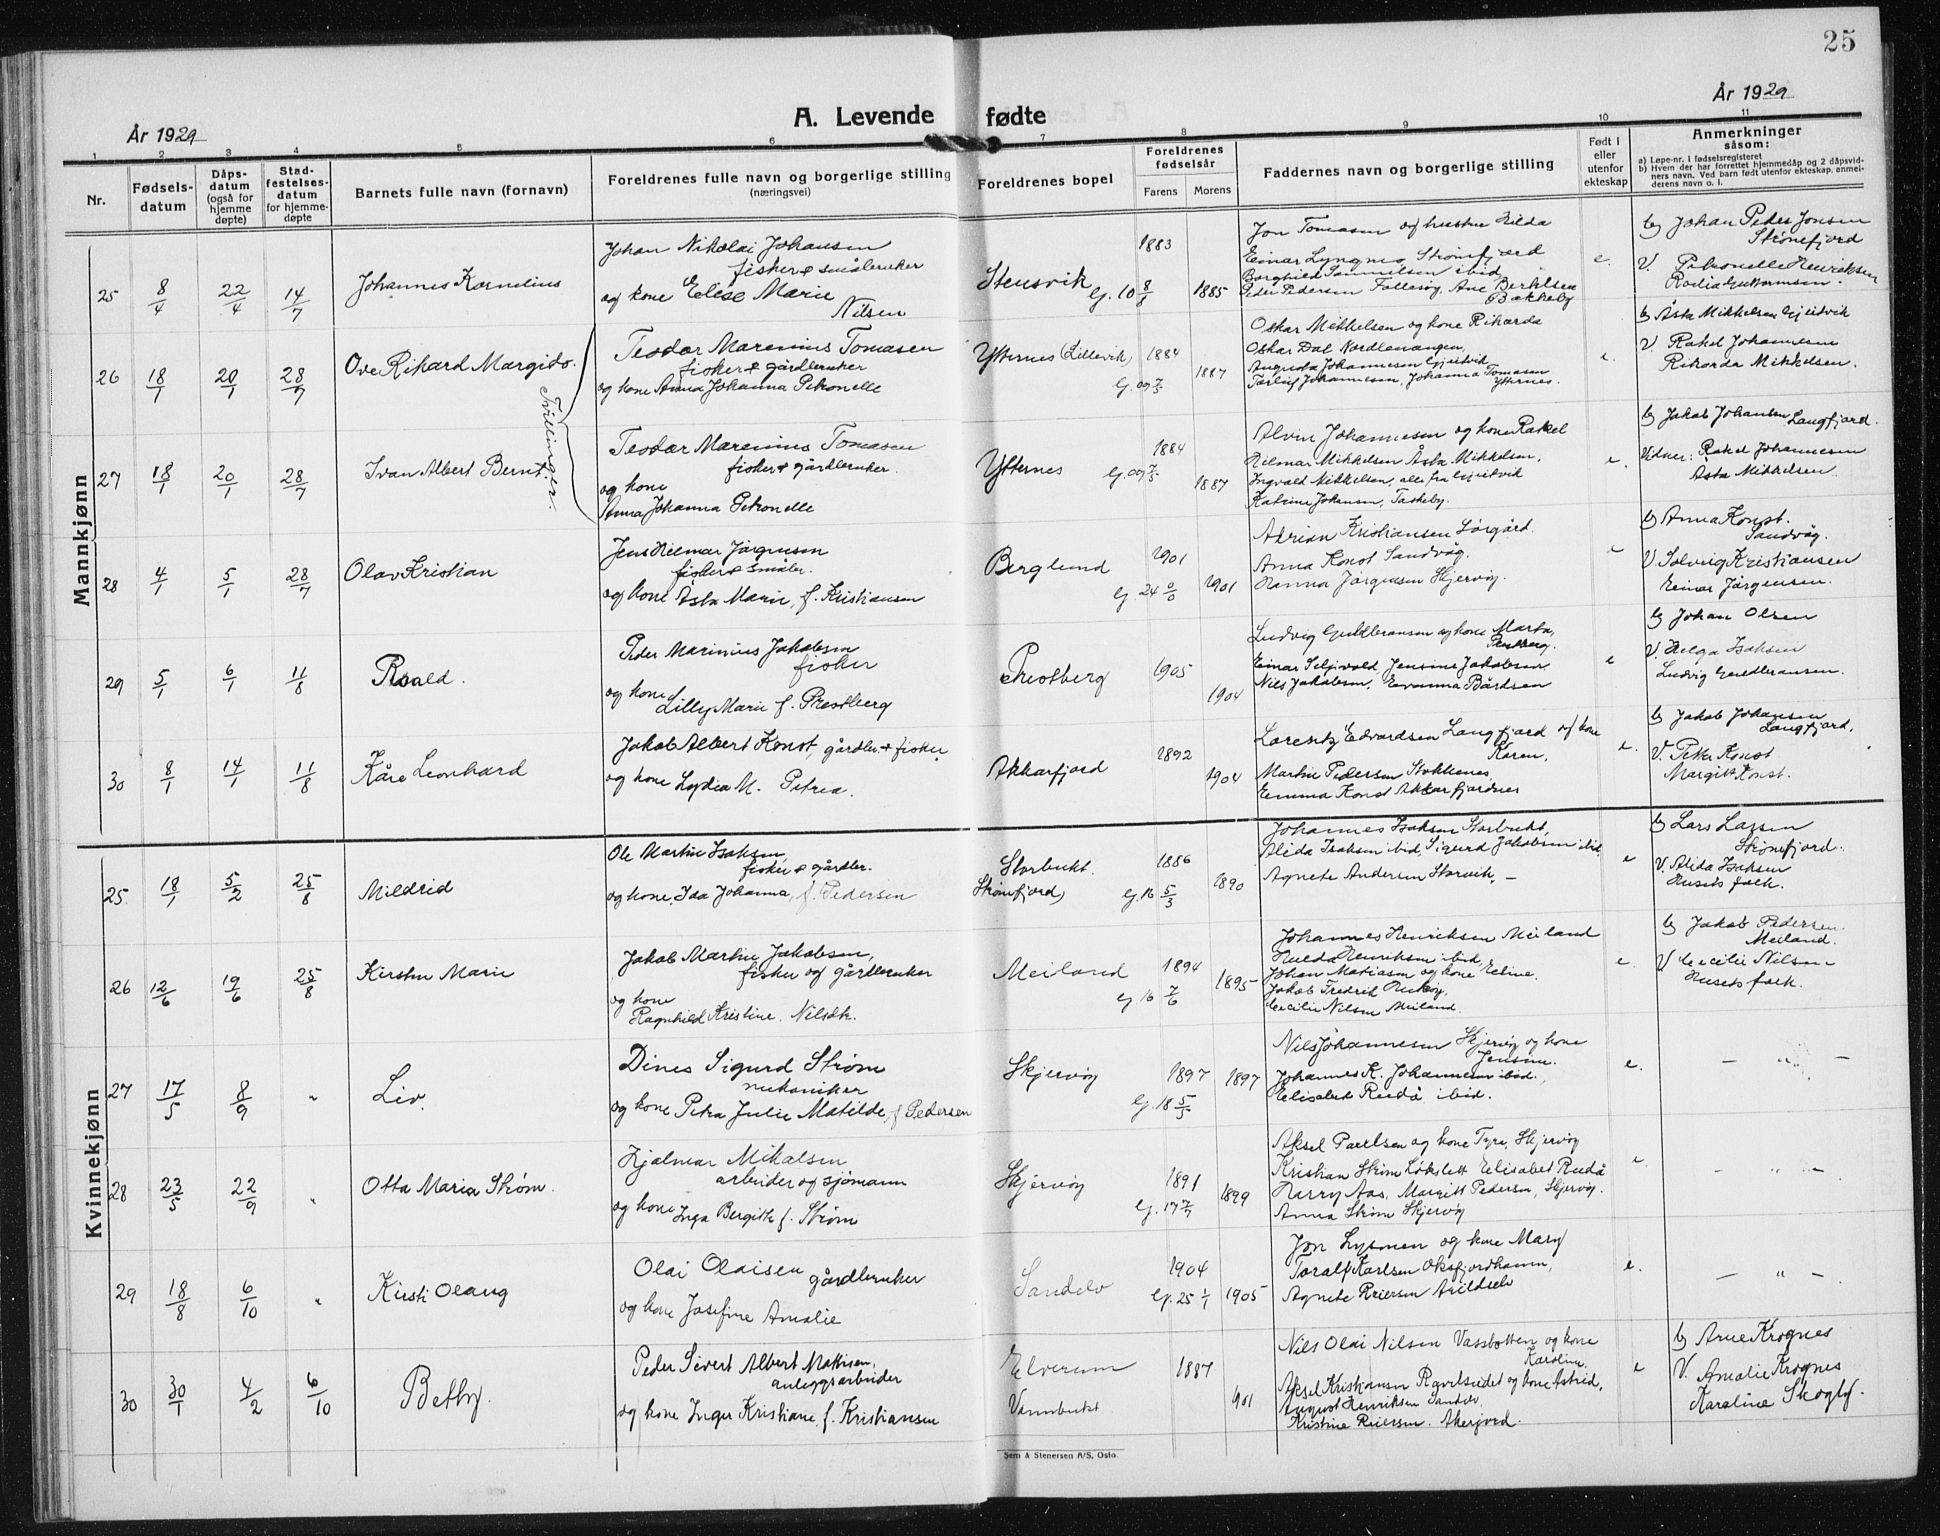 25
År 1929
A. Levende fødte
År 1929
1 2 3 4 5 6 7 8 9 10 11
Nr.
Fødsels-
datum
Dåps-
datum
(også for
hjemme
døpte)
Stad-
festelses-
datum
for hjemme-
døpte
Barnets fulle navn (fornavn)
Foreldrenes fulle navn og borgerlige stilling
(næringsvei)
Foreldrenes bopel
Foreldrenes
fødselsår
Farens Morens
Faddernes navn og borgerlige stilling
Født i
eller
utenfor
ekteskap
Anmerkninger
såsom:
a) Løpe-nr. i fødselsregisteret
b) Hvem der har forrettet hjemmedåp og 2 dåpsvid-
ners navn. Ved barn født utenfor ekteskap, anmel-
derens navn o. l.
Mannkjønn
25 8/4 22/4 14/7 Johannes Kornelius
Johan Nikolai Johansen
fisker & småbruker
og kone Elise Marie
Nilsen
Stensvik 1883
G. 10 8/8 1885
Jon Tomasen og hustru Hilda
Einar Lyngmo, Strømfjord
Borghild Samuelsen ibid
Peder Pedersen Follesøy, Ane Berthelsen
Bakkeby
e.
b) Johan Peder Jonsen
Strømfjord
V. Petronelle Henriksen
26 18/1 20/1 28/7 Ove Rikard Margido.
Tvillinger.
Teodor Marenius Tomasen
fisker & gårdbruker
og kone Anna Johanna Petronelle
Ytternes (Lillevik) 1884
G. 09 7/3 1887
Oskar Mikkelsen og kone Rikarda
Oskar Dal Nordlenangen,
Augusta Johannesen Gjeitvik
Torleif Johannesen, Johanna Tomasen
Ytternes.
e.
b) Åsta Mikkelsen Gjeitvik
V Rakel Johannesen
Rikarda Mikkelsen.
27 18/1 20/1 28/7 Ivan Albert Bernt.
Teodor Marenius Tomasen
fisker & gårdbruker.
og kone
Anna Johanna Petronelle
Ytternes 1884
G. 09 7/3 1887
Alvin Johannesen og kone Rakel
Hilmar Mikkelsen Åsta Mikkelsen,
Ingvald Mikkelsen, alle fra Gjeitvik
Katrine Johansen, Taskeby.
e.
b) Jakob Johansen Langfjord.
Vidner: Rakel Johannesen
Åsta Mikkelsen
28 4/1 5/1 28/7 Olav Kristian
Jens Hilmar Jørgensen
fisker & småbr.
og kone Åsta Marie, f. Kristiansen
Berglund 1901
G. 24 0/0 1901
Adrian Kristiansen Sørgård.
Anna Konst Sandvåg.
Hanna Jørgensen Skjervøy.
e
b) Anna Konst.
Sandvåg.
V. Solveig Kristiansen
Einar Jørgensen.
29 5/1 6/1 11/8 Roald.
Peder Marinius Jakobsen
fisker
og kone
Lilly Marie f. Prestberg
Prestberg 1905
1904
Ludvig Guldbransen og kone Marta,
Prestberg.
Einar Seljevold, Jensine Jakobsen
Nils Jakobsen, Evanna Bårdsen
e
b) Johan Olsen
V. Helga Isaksen
Ludvig Guldbransen.
30 8/1 14/1 11/8 Kåre Leonhard
Jakob Albert Konst, gårdbr. + fisker
og kone Lydia M. Petrea.
Akkarfjord 1892
1904
Lorentz Edvardsen Langfjord og kone
Karen,
Martin Pedersen Stokkenes,
Emma Konst Akkarfjordnes
e.
b) Jakob Johansen
Langfjord,
V. Petra Konst
Margit Konst.
Kvinnekjønn
25. 18/1 5/2 25/8 Mildrid
Ole Martin Isaksen,
fisker & gårdbr.
og kone, Ida Johanna, f. Pedersen
Storbukt.
Strømfjord) 1886
G. 16 5/3 1890
Johannes Isaksen Storbukt,
Alida Isaksen ibid, Sigurd Jakobsen ibid,
Agnete Andersen Storvik, —
e
b) Lars Larsen
Strømfjord.
V. Alida Isaksen
Husets folk.
26 12/6 19/6 25/8 Kirsten Marie
Jakob Martin Jakobsen,
fisker og gårdbruker
og kone
Ragnhild Kristine. Nilsdtr.
Meiland 1894
G 16 7/6 1895
Johannes Henriksen Meiland
Hulda Henriksen ibid,
Johan Matiasen og kone Eline.
Jakob Fredrik
Cecilie Nilsen Meiland.
e.
b) Jakob Pedersen
Meiland.
V Cecilie Nilsen
Husets folk.
27 17/5 8/9 " Liv.
Dines Sigurd Strøm
mekaniker
og kone Petra Julie Matilde, f. Pedersen
Skjervøy 1897 1897
G. 18 5/5
Nils Johannesen Skjervøy og kone
Jensine.
Johannes K. Johannesen ibid.,
Elisabet Rudå ibid.
e.
— " —
28 23/5 22/9 " Otta Maria Strøm.
Hjalmar Mikalsen
arbeider og sjømann
og kone Inga Bergitte f. Strøm
Skjervøy 1891
G. 17 7/7 1899
Aksel Paulsen og kone Tyra, Skjervøy
Kristian Strøm Løkslett Elisabet Rudå
Harry Aas, Margitt Pedersen, Skjervøy.
Anna Strøm Skjervøy
e.
— " —
29 18/8 6/10 " Kirsti Olaug
Olai Olaisen
gårdbruker
og kone Josefine Amalie
Sandelv 1904
G. 25 1/1 1905
Jon Lysmen og kone Mary
Toralf Karlsen Oksfjordhamn,
Agnete Reiersen
e.
— " —
30 30/1 4/2 6/10 Betty.
Peder Sivert Albert Mattisen,
anleggsarbeider
og kone Inger Kristiane f. Kristiansen
Elverum
Vannbukt 1887
1901
Nils Olai Nilsen Vassbotten og kone
Karoline.
Aksel Kristiansen Ravelseidet og kone Astrid,
August Henriksen Sandelv,
Kristine Reiersen. Akerjord.
e
b) Arne Krognes
V. Amalie Krognes
Karoline Skoglf.
Sem & Stenersen A/S, Oslo.